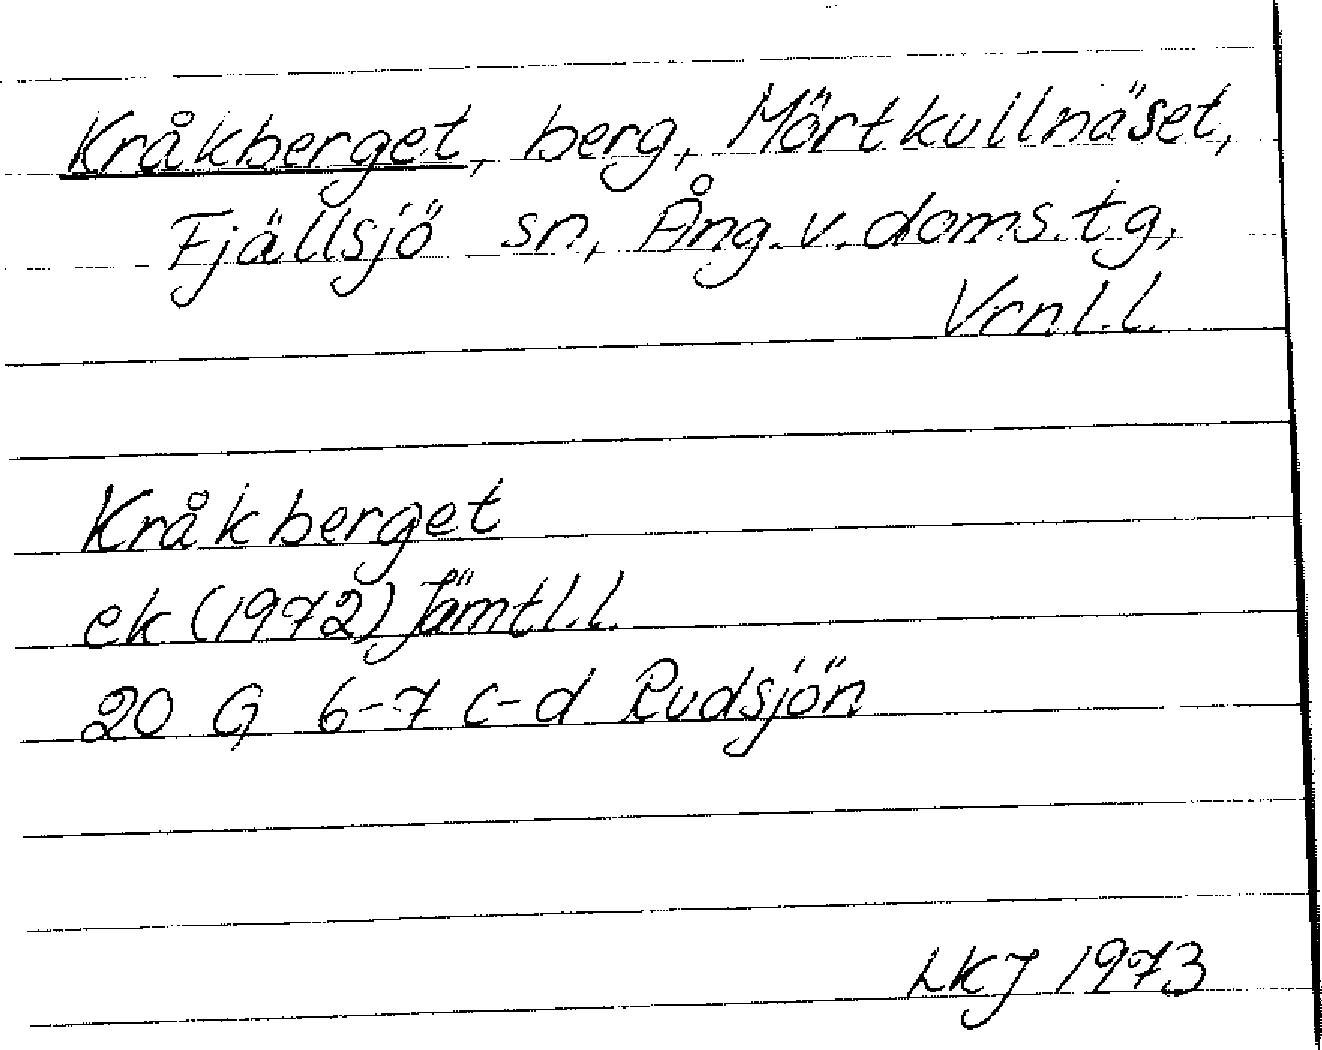 Kråkberget, berg, Mörtkullnäset,
Fjällsjö sn, Ång.v.doms.tg,
Vrnl.l.
Kråkberget
ek (1972) Jämtl.l.
20 G 6-7 c-d Rudsjön
LKJ 1973